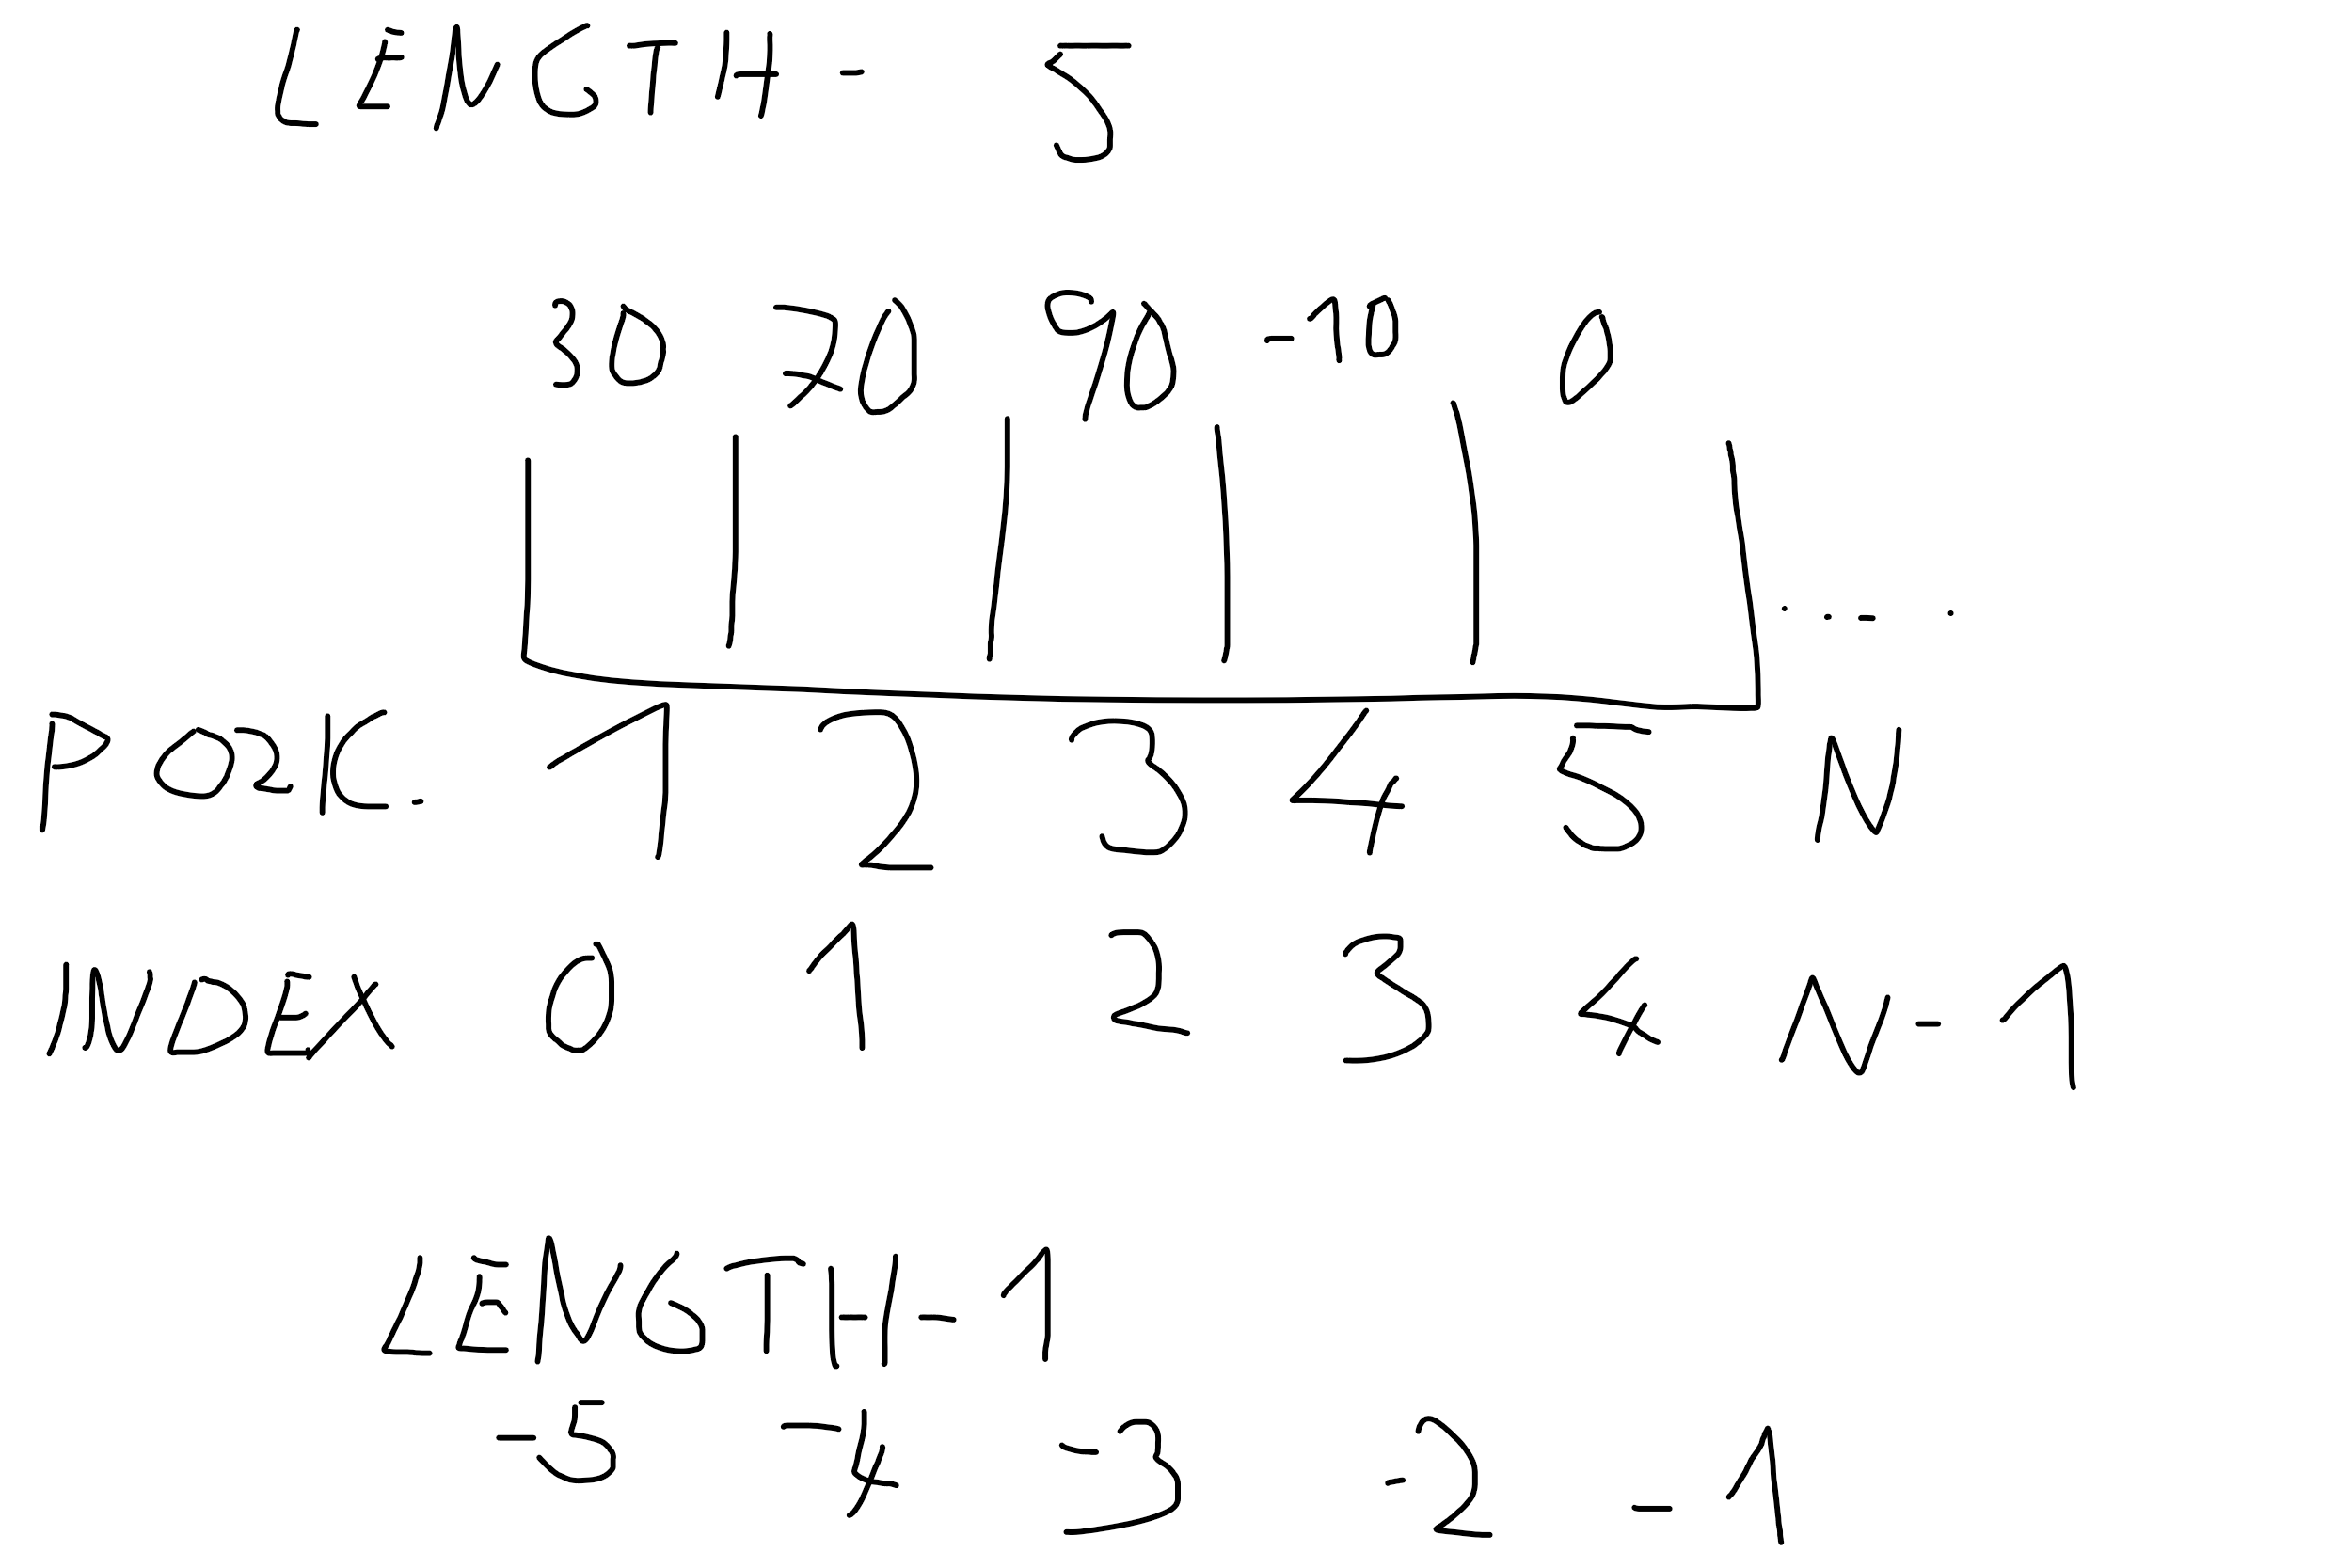 LENGTH - 5
30 70 90 -10 0
. . . .
РОЗК. 1 2 3 4 5 N
INDEX 0 1 2 3 4 N-1
LENGTH - 1
-5 -4 -3 -2 -1